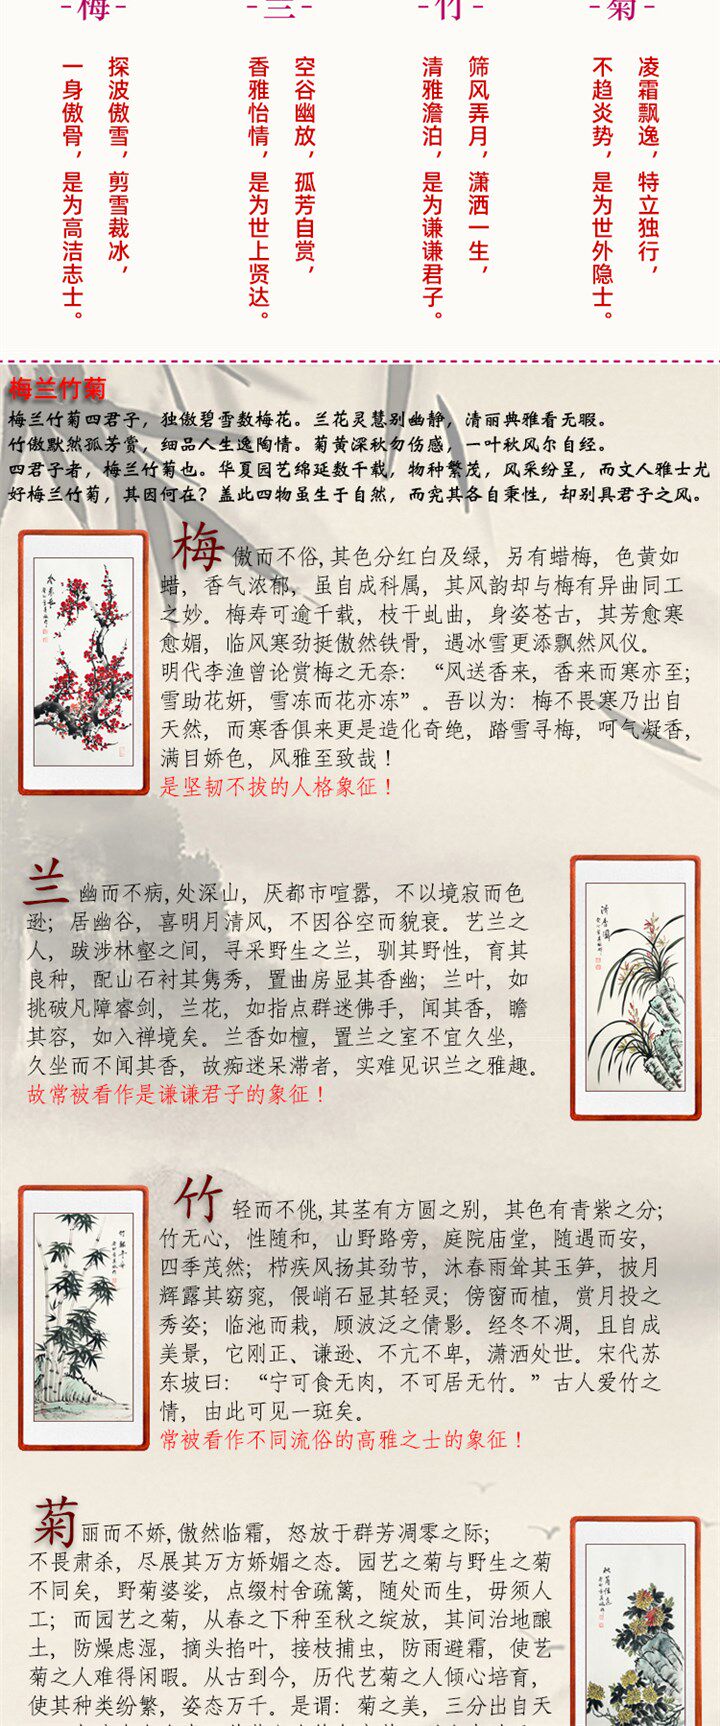 -梅-
-兰-
-竹-
-菊-
探波傲雪，剪雪裁冰，
一身傲骨，是为高洁志士。
空谷幽放，孤芳自赏，
香雅怡情，是为世上贤达。
筛风弄月，潇洒一生，
清雅澹泊，是为谦谦君子。
凌霜飘逸，特立独行，
不趋炎势，是为世外隐士。
梅兰竹菊
梅兰竹菊四君子，独傲碧雪数梅花。兰花灵慧别幽静，清丽典雅看无暇。
竹傲默然孤芳赏，细品人生逸陶情。菊黄深秋勿伤感，一叶秋风尔自经。
四君子者，梅兰竹菊也。华夏园艺绵延数千载，物种繁茂，风采纷呈，而文人雅士尤
好梅兰竹菊，其因何在？盖此四物虽生于自然，而究其各自秉性，却别具君子之风。
梅 傲而不俗,其色分红白及绿，另有蜡梅，色黄如
蜡，香气浓郁，虽自成科属，其风韵却与梅有异曲同工
之妙。梅寿可逾千载，枝干虬曲，身姿苍古，其芳愈寒
愈媚，临风寒劲挺傲然铁骨，遇冰雪更添飘然风仪。
明代李渔曾论赏梅之无奈：“风送香来，香来而寒亦至；
雪助花妍，雪冻而花亦冻”。吾以为：梅不畏寒乃出自
天然，而寒香俱来更是造化奇绝，踏雪寻梅，呵气凝香，
满目娇色，风雅至致哉！
是坚韧不拔的人格象征！
兰 幽而不病,处深山，厌都市喧嚣，不以境寂而色
逊；居幽谷，喜明月清风，不因谷空而貌衰。艺兰之
人，跋涉林壑之间，寻采野生之兰，驯其野性，育其
良种，配山石衬其隽秀，置曲房显其香幽；兰叶，如
挑破凡障睿剑，兰花，如指点群迷佛手，闻其香，瞻
其容，如入禅境矣。兰香如檀，置兰之室不宜久坐，
久坐而不闻其香，故痴迷呆滞者，实难见识兰之雅趣。
故常被看作是谦谦君子的象征！
清香图
竹 轻而不佻,其茎有方圆之别，其色有青紫之分；
竹无心，性随和，山野路旁，庭院庙堂，随遇而安，
四季茂然；栉疾风扬其劲节，沐春雨耸其玉笋，披月
辉露其窈窕，偎峭石显其轻灵；傍窗而植，赏月投之
秀姿；临池而栽，顾波泛之倩影。经冬不凋，且自成
美景，它刚正、谦逊、不亢不卑，潇洒处世。宋代苏
东坡曰：“宁可食无肉，不可居无竹。”古人爱竹之
情，由此可见一斑矣。
常被看作不同流俗的高雅之士的象征！
菊 丽而不娇,傲然临霜，怒放于群芳凋零之际；
不畏肃杀，尽展其万方娇媚之态。园艺之菊与野生之菊
不同矣，野菊婆娑，点缀村舍疏篱，随处而生，毋须人
工；而园艺之菊，从春之下种至秋之绽放，其间治地酿
土，防燥虑湿，摘头掐叶，接枝捕虫，防雨避霜，使艺
菊之人难得闲暇。从古到今，历代艺菊之人倾心培育，
使其种类纷繁，姿态万千。是谓：菊之美，三分出自天